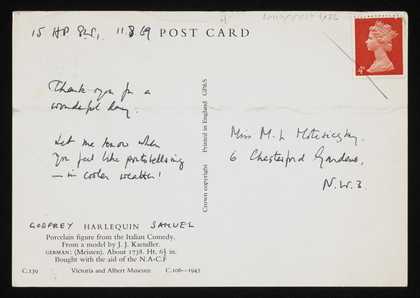 15 HP Sts, 11 8 69
POST CARD
Thank you for a
wonderful day.
Let me know when
you feel like portobelloing
— in cooler weather!
Miss M. L Motesiczky.
6 Chesterford Gardens.
N.W.3.
Crown copyright Printed in England GP65
GODFREY HARLEQUIN SAMUEL
Porcelain figure from the Italian Comedy.
From a model by J. J. Kaendler.
GERMAN; (Meissen). About 1738. Ht. 6½ in.
Bought with the aid of the N.A-C.F
C.239 Victoria and Albert Museum C.106—1945